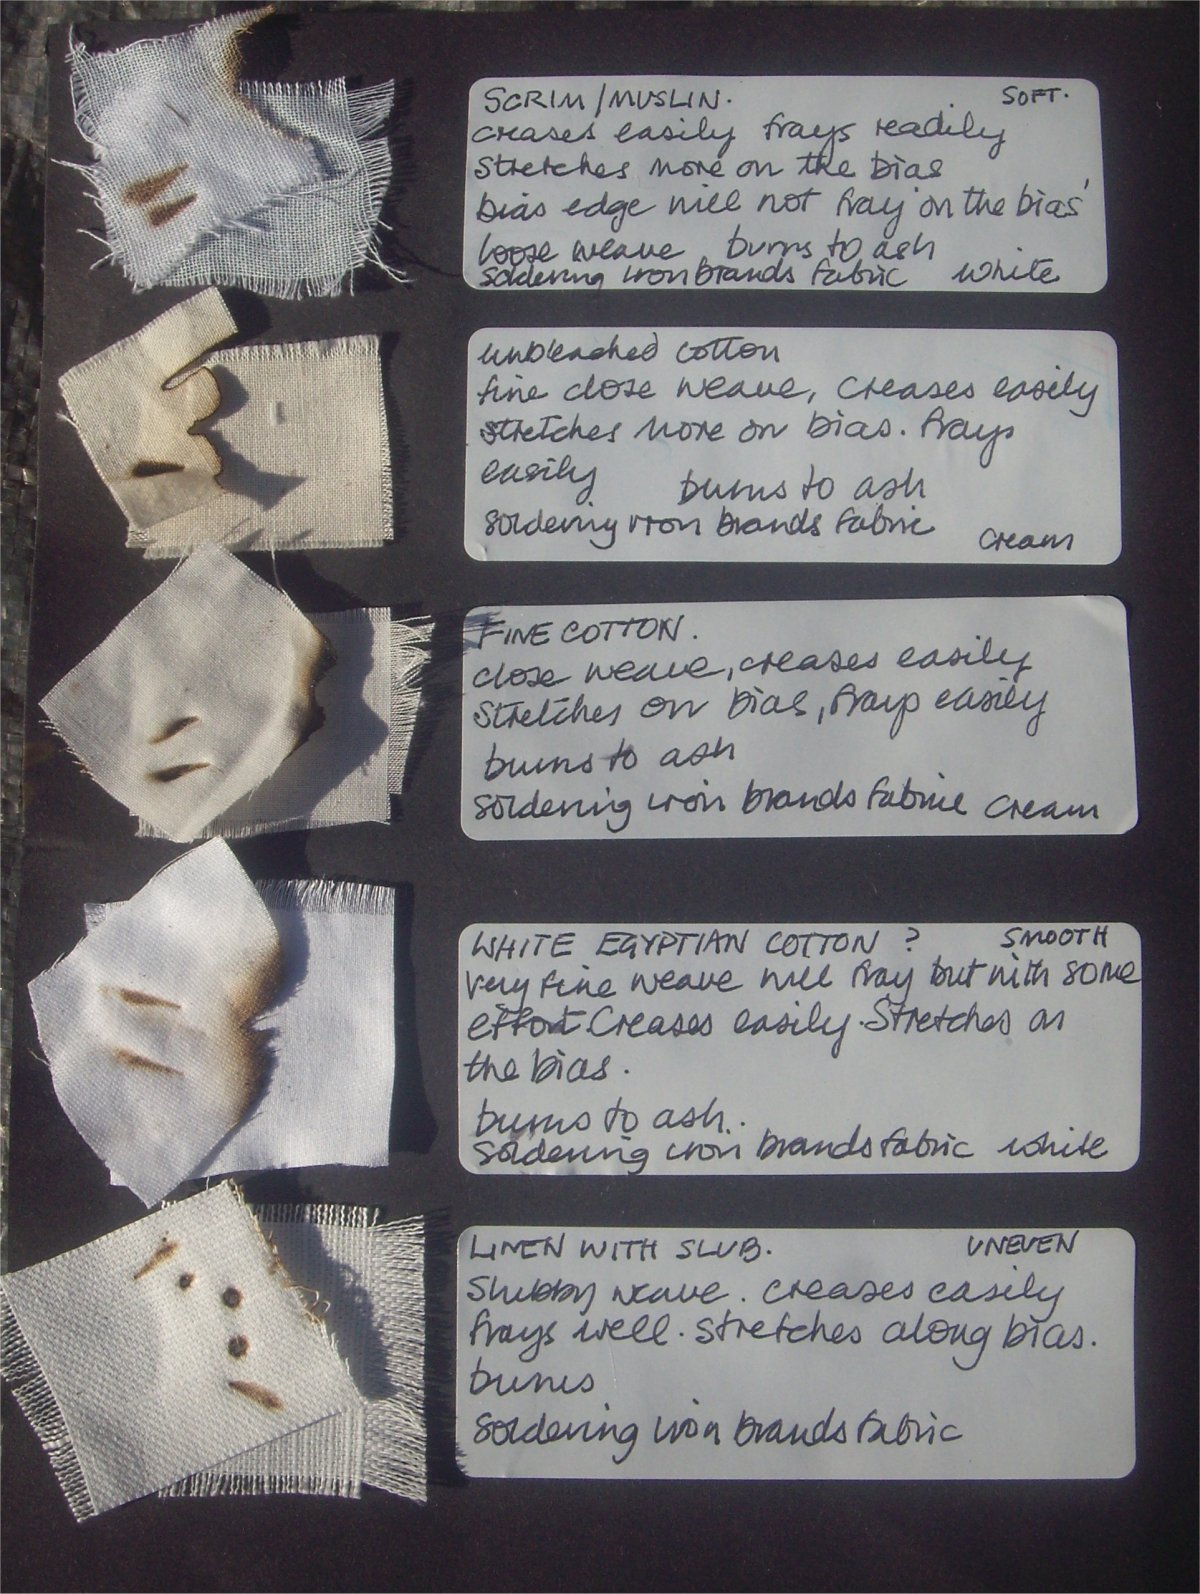 SCRIM/MUSLIN. SOFT.
creases easily frays readily
stretches more on the bias
bias edge will not fray 'on the bias'
loose weave burns to ash
soldering iron brands fabric white
unbleached cotton
fine close weave, creases easily
stretches more on bias. frays
easily burns to ash
soldering iron brands fabric cream
FINE COTTON.
close weave, creases easily
stretches on bias, frays easily
burns to ash
soldering iron brands fabric cream
WHITE EGYPTIAN COTTON ? SMOOTH
very fine weave will fray but with some
effort. Creases easily. Stretches on
the bias.
burns to ash.
soldering iron brands fabric white
LINEN WITH SLUB. UNEVEN
Slubby weave. creases easily
frays well. stretches along bias.
burns
soldering iron brands fabric